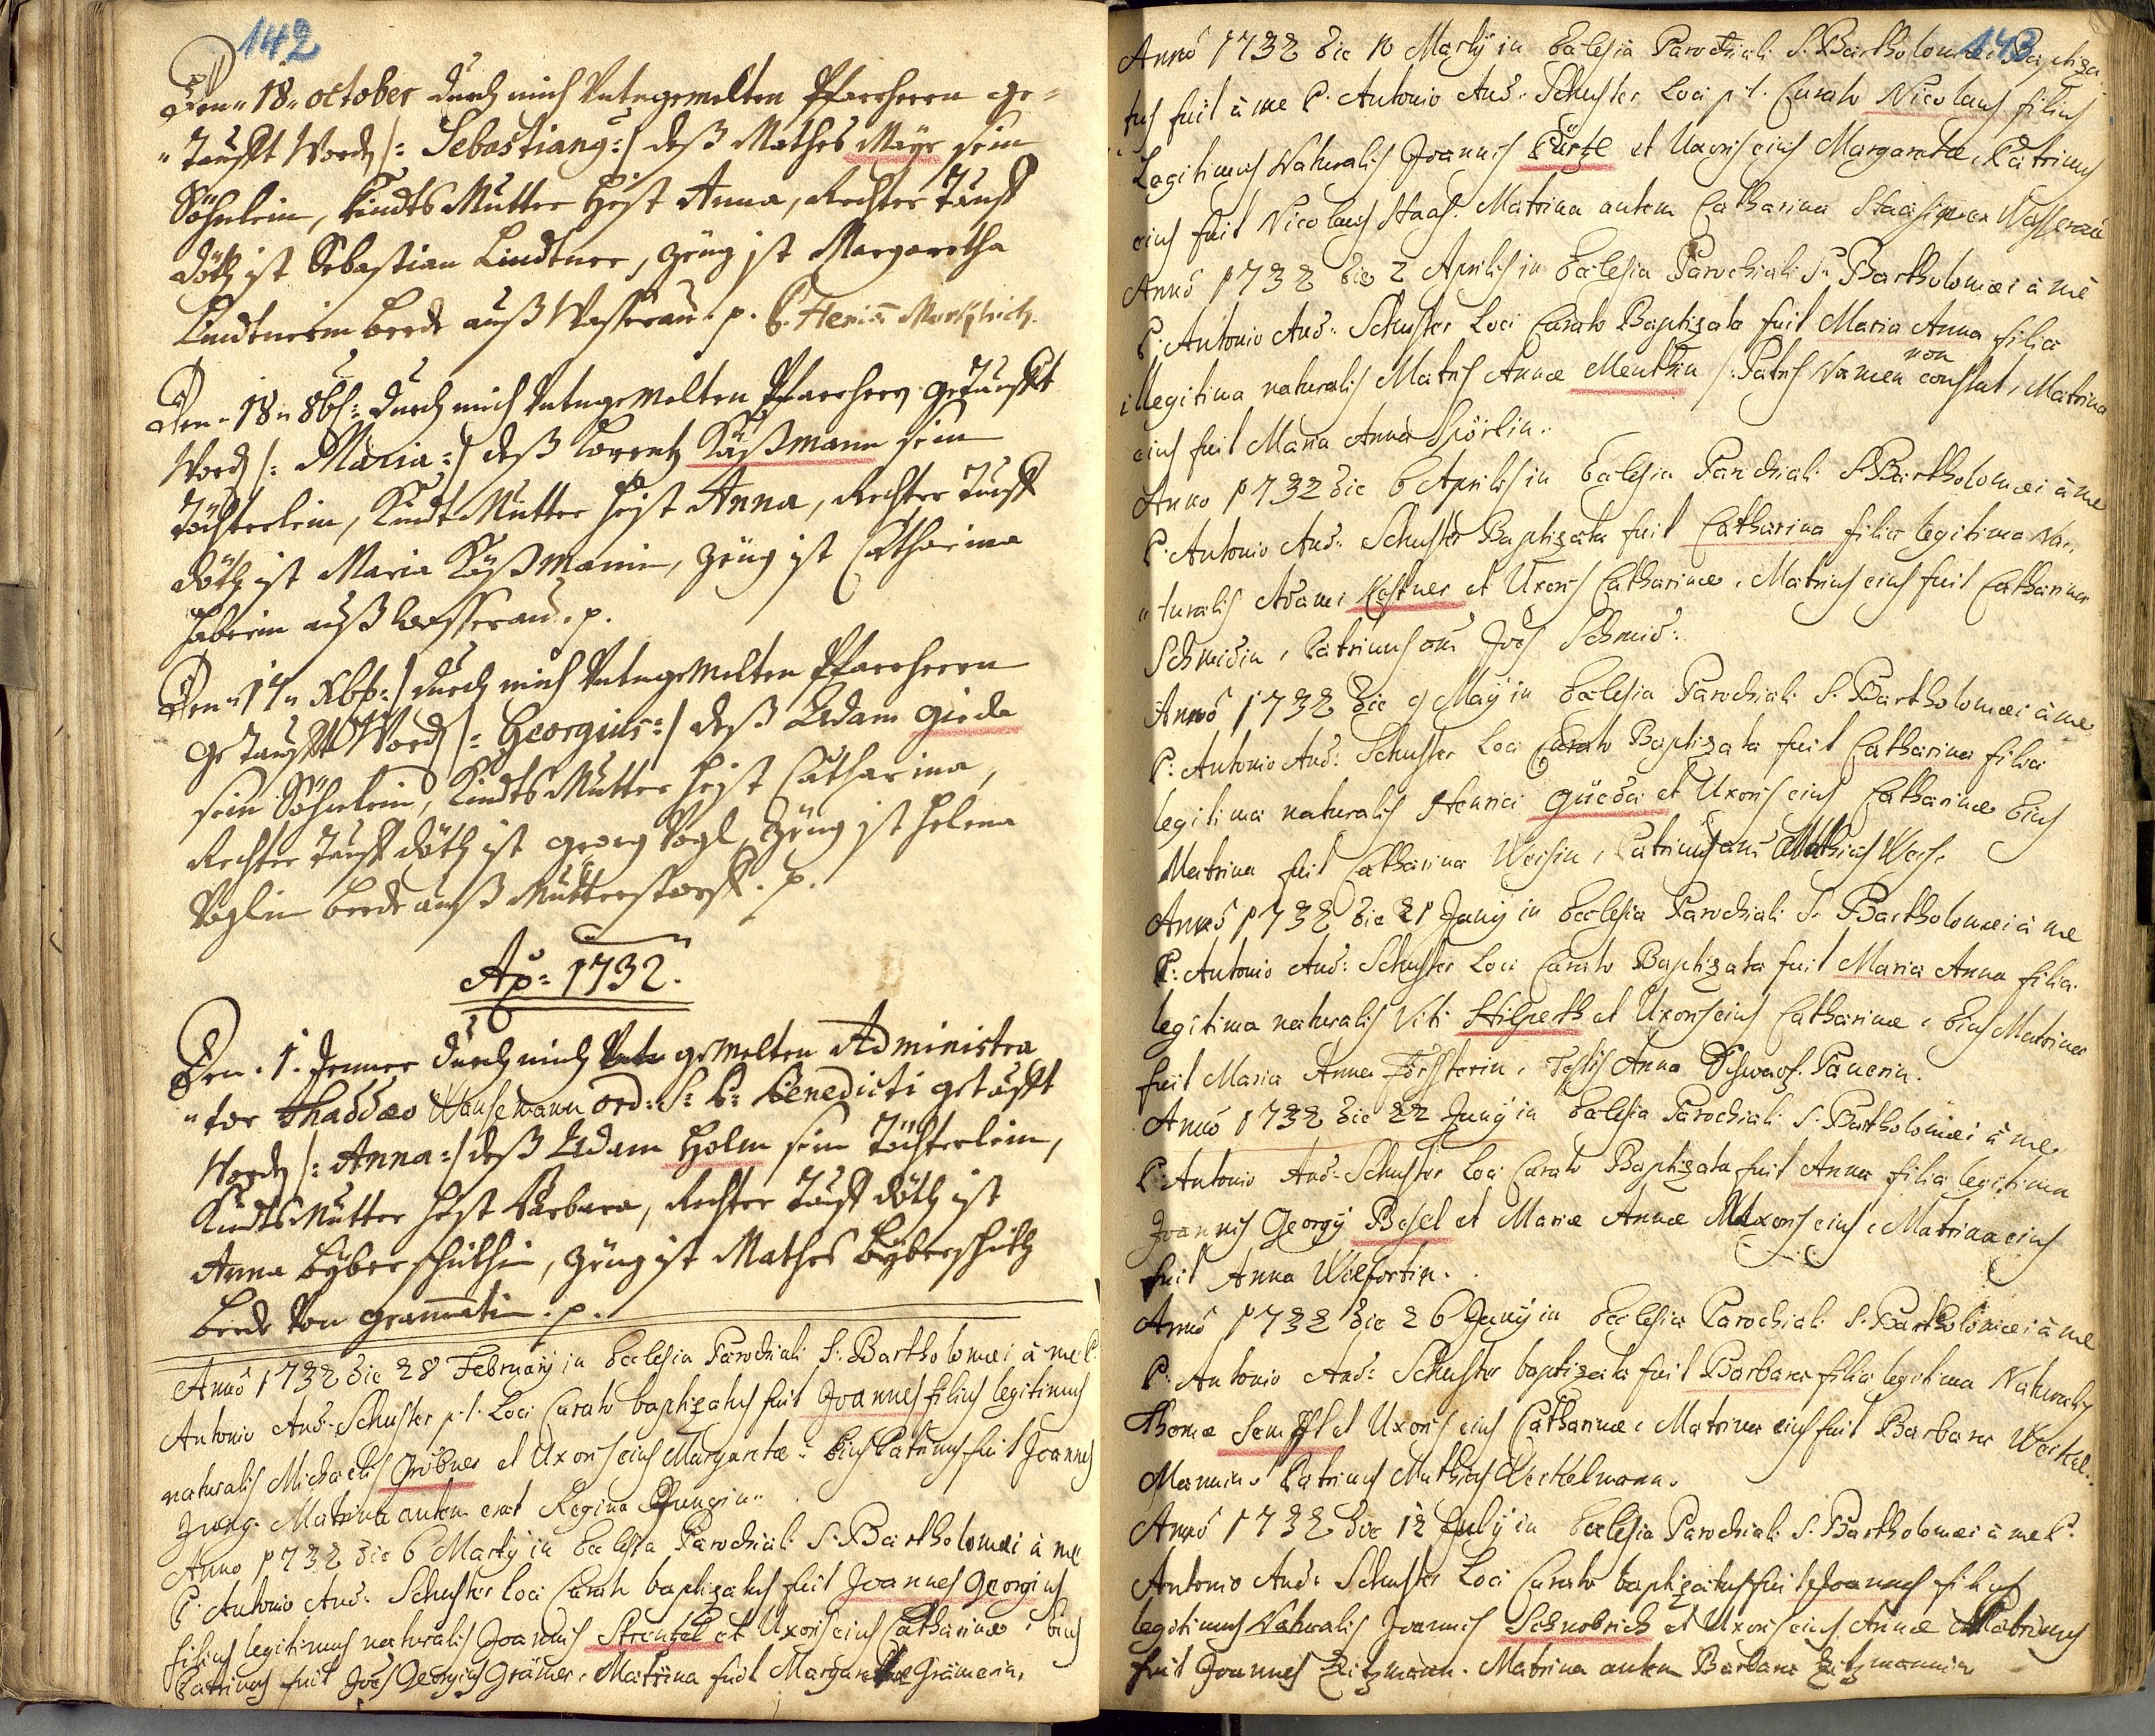 142
Den 18 october durch mich Untengemelten Pfarrherrn ge=
"taufft Worden /: Sebastianus :/ deß Mathes Mayr sein
Söhnlein, Kindts Mutter heist Anna, Rechter Tauff
döth ist Sebastian Lindtner, zeug ist Margaretha
Lindtnerin beede auß Wasserau. p.
Den 18 8br: durch mich Untengemelten Pfarrherrn getaufft
Word /: Maria :/ deß Lorentz Käßmann sein
Töchterlein, Kindts Mutter heist Anna, Rechter Tauff
döth ist Maria Käßmanin, zeug ist Catharina
Haberin auß Wasserau. p.
Den Xbr: durch mich Untengemelten Pfarrherrn
getaufft Word /: Georgius :/ deß Adam Gieda
sein Söhnlein, Kindts Mutter heist Catharina,
Rechter Tauff döth ist Georg Vogl, zeug ist Helena
Voglin beede auß Mutterstorff. p.
Ao: 1732.
Den 1. Jenner durch mich Unten gemelten Administra
"tor Thaddæo Hansemann ord: S: P: Benedicti getaufft
Worden /: Anna :/ deß Adam Holm sein Töchterlein,
Kindts Mutter heist Barbara, Rechter Tauff döth ist
Anna Byberschithin, zeug ist Mathes Byberschith
beede von Grammatin. p.
Anno 1732 die 28 Februarij in Ecclesia Parochiali S. Bartholomæi à me P.
Antonio And. Schuster p.t. Loci Curato baptizatus fuit Joannes filius legitimus
naturalis Michaelis Gröbner et Uxoris eius Margaretæ. Eius Patrinus fuit Joannes
Jung. Matrina autem erat Regina Jungin.
Anno 1732 die 6 Martij in Ecclesia Parochiali S. Bartholomæi à me
P. Antonio And. Schuster loci Curato baptizatus fuit Joannes Georgius
filius legitimus naturalis Joannis Strentzl et Uxoris eius Catharinæ. eius
Patrinus fuit Joes Georgius Grämer. Matrina fuit Margaretha Grämerin.
143
Anno 1732 die 10 Martij in Ecclesia Parochiali S. Bartholomæi Baptiza
tus fuit à me P. Antonio And. Schuster Loci p.t. Curato Nicolaus filius
Legitimus Naturalis Joannis Pürtzl et Uxoris eius Margaretæ. Patrinus
eius fuit Nicolaus Haas. Matrina autem Catharina ex Wasserau
Anno 1732 die 2 Aprilis in Ecclesia Parochiali S. Bartholomæi à me
P. Antonio And. Schuster Loci Curato Baptizata fuit Maria Anna filia
illegitima naturalis Matris Annæ Menthin /. Patris Nomen non constat. Matrina
eius fuit Maria Anna Spörlin.
Anno 1732 die 6 Aprilis in Ecclesia Parochiali S. Bartholomæi à me
P. Antonio And. Schuster Baptizata fuit Catharina filia legitima Na
"turalis Adami Kestner et Uxoris Catharinæ. Matrina eius fuit Catharina
Schmidin, Patrinus Joes Schmid.
Anno 1732 die 9 May in Ecclesia Parochiali S. Bartholomæi à me
P. Antonio And. Schuster Loci Curato Baptizata fuit Catharina filia
legitima naturalis Henrici Güeda et Uxoris eius Catharinæ Eius
Matrina fuit Catharina Weisin, Patrinus Mathias Weis.
Anno 1732 die 21 Junij in Ecclesia Parochiali S. Bartholomæi à me
P. Antonio And. Schuster Loci Curato Baptizata fuit Maria Anna filia
legitima naturalis Viti Hilperth et Uxoris eius Catharinæ. Eius Matrina
fuit Maria Anna Förtsterin. Testis Anna
Anno 1732 die 22 Junij in Ecclesia Parochiali S. Bartholomæi à me
P. Antonio And. Schuster Loci Curato Baptizata fuit Anna filia legitima
Joannis Georgij Besel et Mariæ Annæ Uxoris eius. Matrina eius
fuit Anna Wilfortin.
Anno 1732 die 26 Junij in Ecclesia Parochiali S. Bartholomæi à me
P. Antonio And. Schuster baptizata fuit Barbara filia legitima Naturalis
Thomæ Semftl et Uxoris eius Catharinæ. Matrina eius fuit Barbara Werkel
Mannin. Patrinus Mathias Werkelmann.
Anno 1732 die 12 July in Ecclesia Parochiali S. Bartholomæi à me P.
Antonio And. Schuster Loci Curato baptizatus fuit Joannes filius
legitimus Naturalis Joannis Schnobrich et Uxoris eius Annæ Patrinus
fuit Joannes Zitzmann. Matrina autem Barbara Zitzmannin